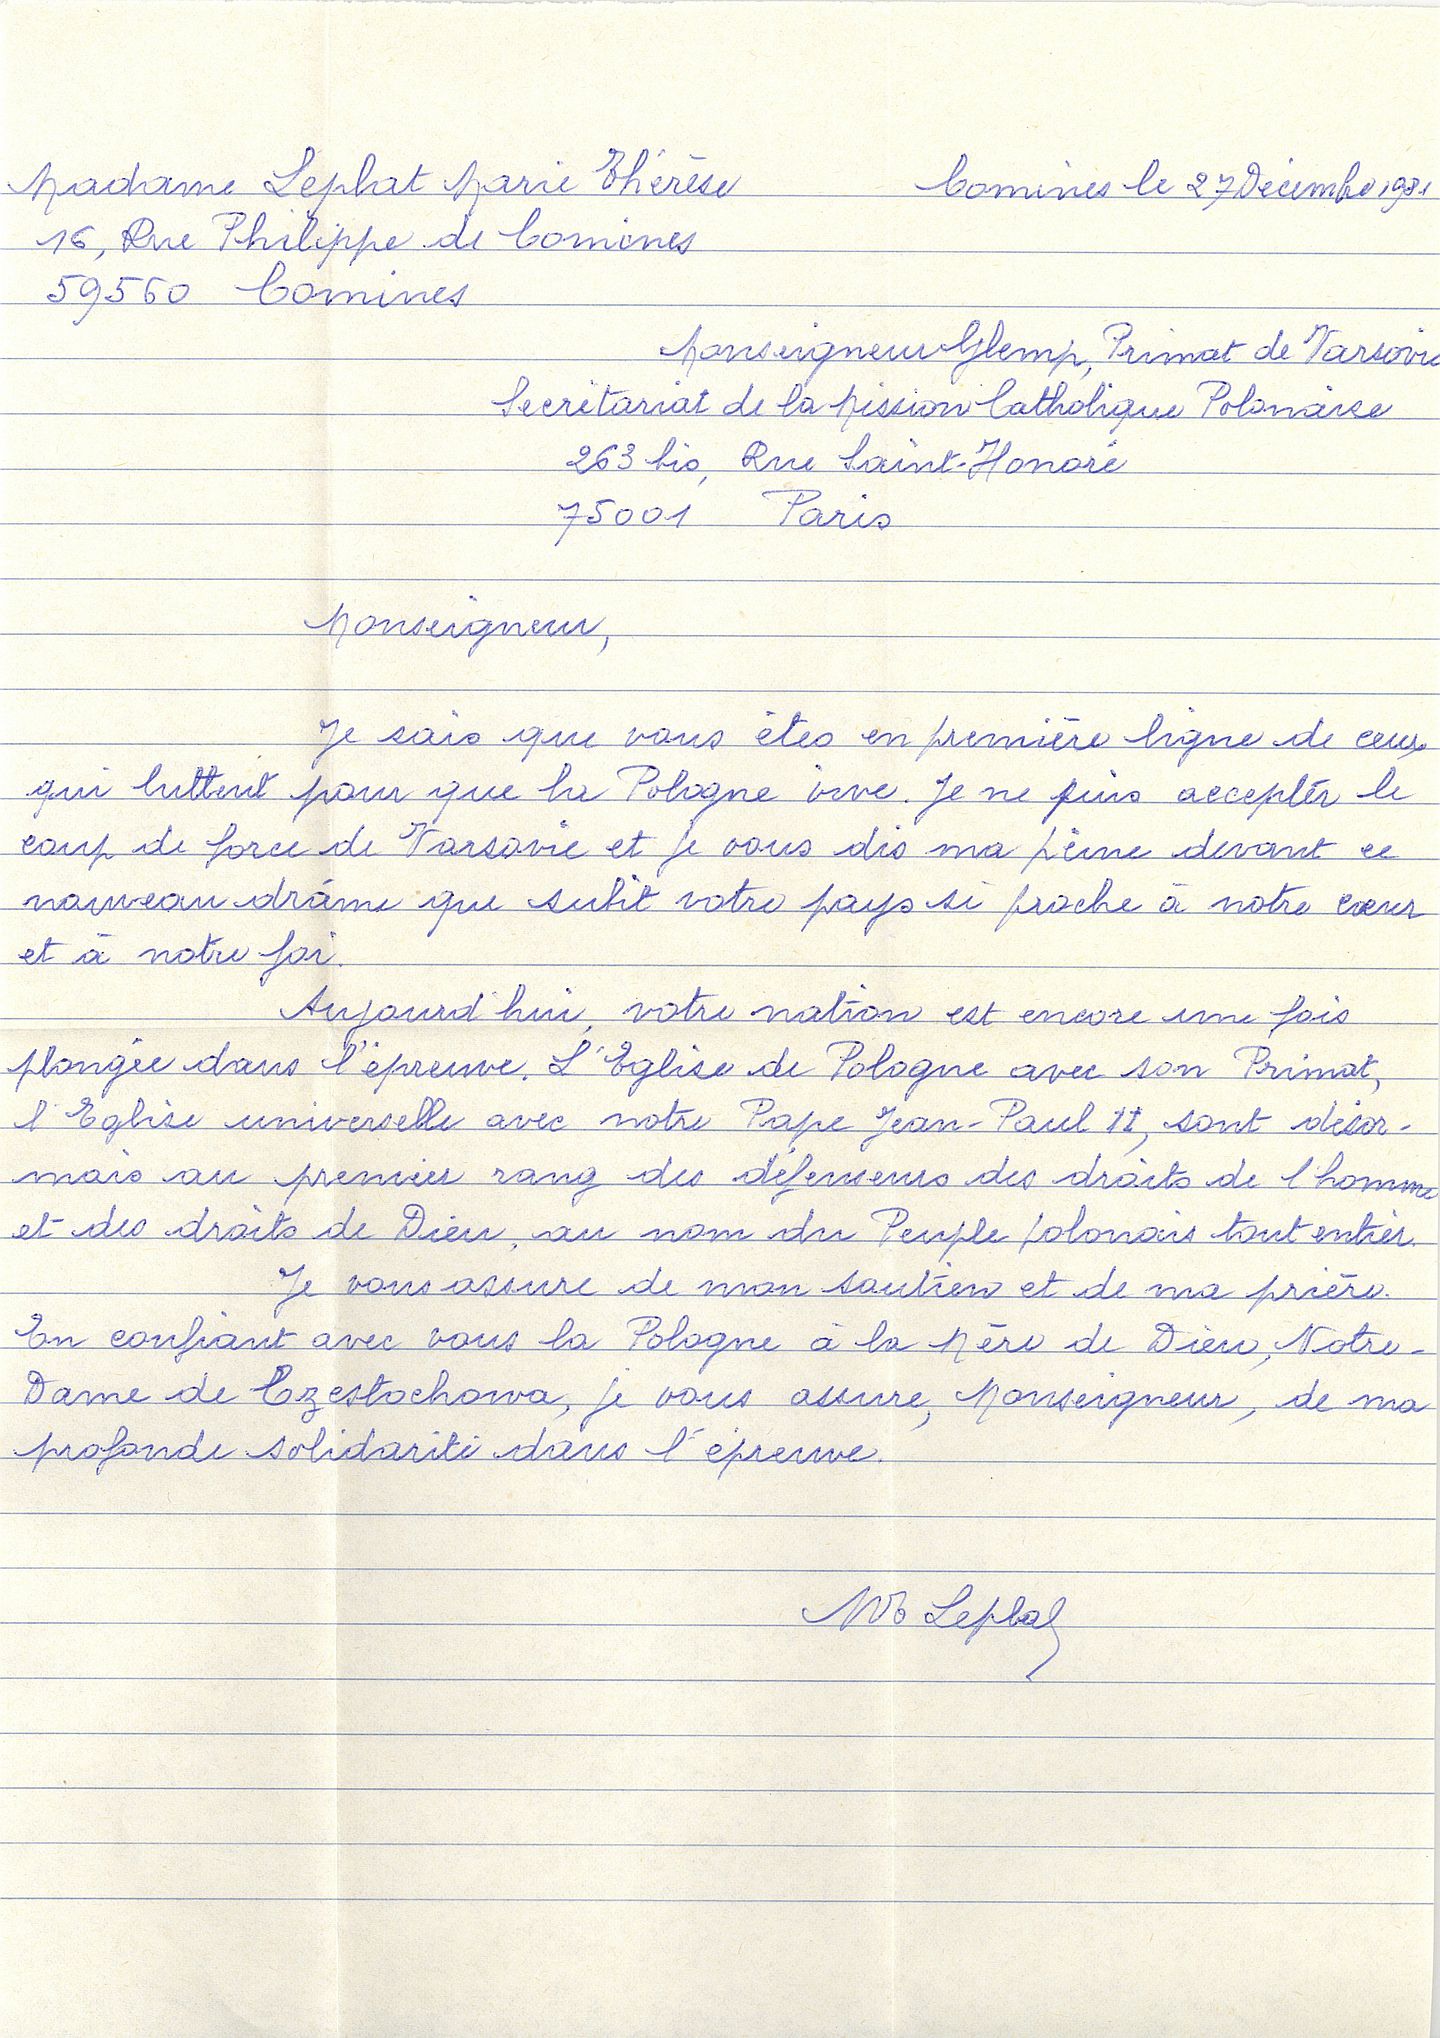 Madame Leplat Marie Thérèse
Comines le 27 Décembre 1981
16, Rue Philippe de Comines
59560 Comines
Monseigneur Glemp, Primat de Varsovie
Secrétariat de la Mission Catholique Polonaise
263 bis, Rue Saint-Honoré
75001 Paris
Monseigneur,
Je sais que vous êtes en première ligne de ceux
qui luttent pour que la Pologne vive. Je ne puis accepter le
coup de force de Varsovie et je vous dis ma peine devant ce
nouveau drâme que subit votre pays si proche à notre cœur
et à notre foi.
Aujourd'hui, votre nation est encore une fois
plongée dans l'épreuve. L'Eglise de Pologne avec son Primat,
l'Eglise universelle avec notre Pape Jean-Paul II, sont désor-
mais au premier rang des défenseurs des droits de l'homme
et des droits de Dieu, au nom du Peuple polonais tout entier.
Je vous assure de mon soutien et de ma prière.
En confiant avec vous la Pologne à la Mère de Dieu, Notre-
Dame de Czestochowa, je vous assure, Monseigneur, de ma
profonde solidarité dans l'épreuve.
Leplat